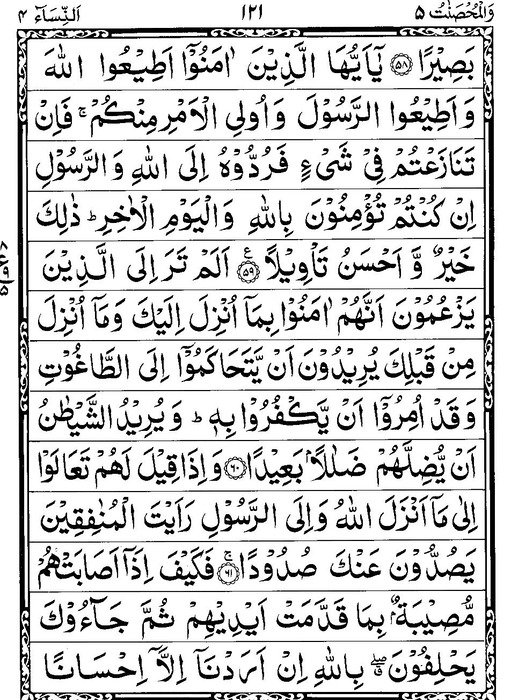 وَالْمُحْصَنٰتُ ۵ ١٢١ اَلنِّسَآء ۴
بَصِيْرًا ﴿۵۸﴾ يٰۤاَيُّهَا الَّذِيْنَ اٰمَنُوْۤا اَطِيْعُوا اللّٰهَ
وَاَطِيْعُوا الرَّسُوْلَ وَاُولِى الْاَمْرِ مِنْكُمْ ۚ فَاِنْ
تَنَازَعْتُمْ فِىْ شَىْءٍ فَرُدُّوْهُ اِلَى اللّٰهِ وَالرَّسُوْلِ
اِنْ كُنْتُمْ تُؤْمِنُوْنَ بِاللّٰهِ وَالْيَوْمِ الْاٰخِرِ ؕ ذٰلِكَ
خَيْرٌ وَّاَحْسَنُ تَاْوِيْلًا ﴿۵۹﴾ ع اَلَمْ تَرَ اِلَى الَّذِيْنَ
يَزْعُمُوْنَ اَنَّهُمْ اٰمَنُوْا بِمَاۤ اُنْزِلَ اِلَيْكَ وَمَاۤ اُنْزِلَ
مِنْ قَبْلِكَ يُرِيْدُوْنَ اَنْ يَّتَحَاكَمُوْۤا اِلَى الطَّاغُوْتِ
وَقَدْ اُمِرُوْۤا اَنْ يَّكْفُرُوْا بِهٖ ؕ وَيُرِيْدُ الشَّيْطٰنُ
اَنْ يُّضِلَّهُمْ ضَلٰلًاۢ بَعِيْدًا ﴿۶۰﴾ وَاِذَا قِيْلَ لَهُمْ تَعَالَوْا
اِلٰى مَاۤ اَنْزَلَ اللّٰهُ وَاِلَى الرَّسُوْلِ رَاَيْتَ الْمُنٰفِقِيْنَ
يَصُدُّوْنَ عَنْكَ صُدُوْدًا ﴿۶۱﴾ ۚ فَكَيْفَ اِذَاۤ اَصَابَتْهُمْ
مُّصِيْبَةٌۢ بِمَا قَدَّمَتْ اَيْدِيْهِمْ ثُمَّ جَآءُوْكَ
يَحْلِفُوْنَ ۖ بِاللّٰهِ اِنْ اَرَدْنَاۤ اِلَّاۤ اِحْسَانًا